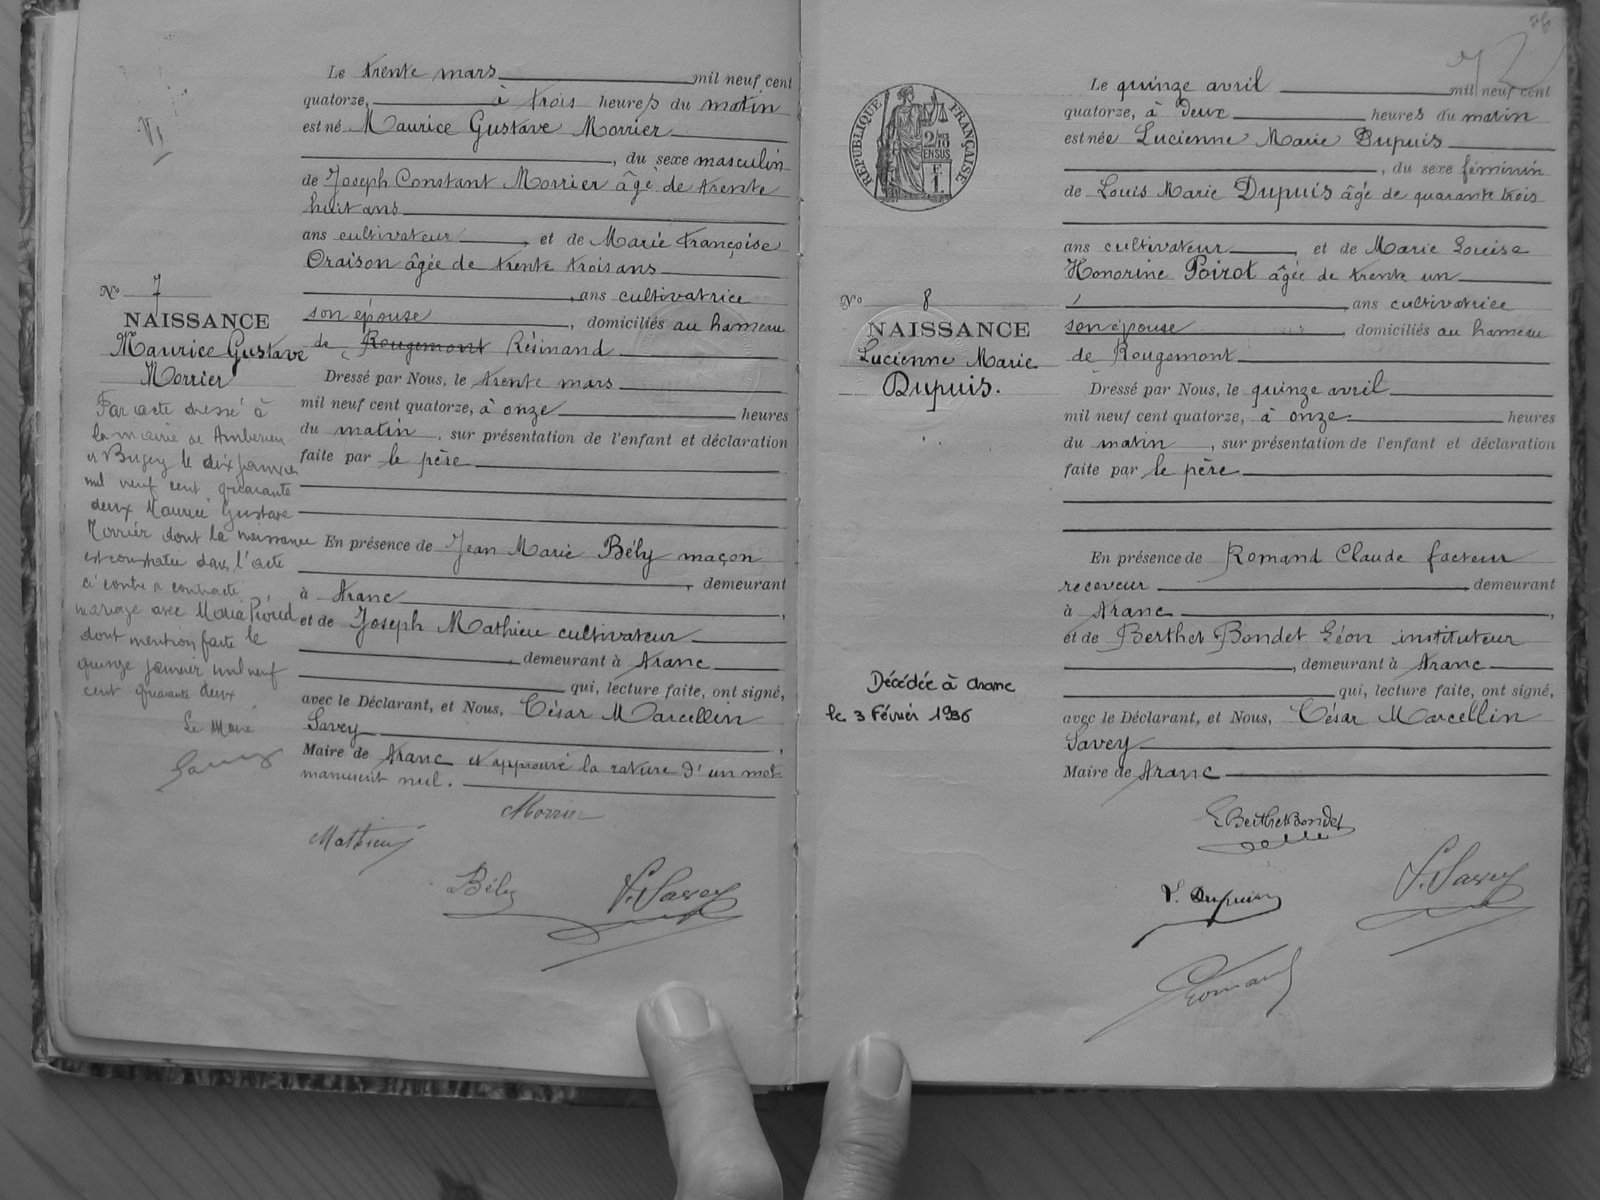 Le trente mars mil neuf cent
quatorze, à trois heures du matin
est né Maurice Gustave Morrier
, du sexe masculin
de Joseph Constant Morrier âgé de trente
huit ans
ans cultivateur , et de Marie Françoise
Oraison âgée de trente trois ans
, ans cultivatrice
son épouse , domiciliés au hameau
de Rougemont Résinand
Dressé par Nous, le trente mars
mil neuf cent quatorze, à onze heures
du matin , sur présentation de l'enfant et déclaration
faite par le père
En présence de Jean Marie Bély maçon
, demeurant
à Aranc ,
et de Joseph Mathieu cultivateur
, demeurant à Aranc
qui, lecture faite, ont signé,
avec le Déclarant, et Nous, César Marcellin
Savey ,
Maire de Aranc et approuvé la rature d'un mot
manuscrit nul.
Morrier
Mathieu
Bély
V. Savey
N° 7
NAISSANCE
Maurice Gustave
Morrier
Par acte dressé à
la mairie de Ambérieu
en Bugey le dix janvier
mil neuf cent quarante
deux Maurice Gustave
Morrier dont la naissance
est constatée dans l'acte
ci contre a contracté
mariage avec Maria
dont mention faite le
quinze janvier mil neuf
cent quarante deux
Le Maire
Savey
72
RÉPUBLIQUE FRANÇAISE
2/10
EN SUS
F.
1.
Le quinze avril mil neuf cent
quatorze, à deux heures du matin
est née Lucienne Marie Dupuis
, du sexe féminin
de Louis Marie Dupuis âgé de quarante trois
ans cultivateur , et de Marie Louise
Honorine Poirot âgée de trente un
ans cultivatrice
son épouse , domiciliés au hameau
de Rougemont
Dressé par Nous, le quinze avril
mil neuf cent quatorze, à onze heures
du matin , sur présentation de l'enfant et déclaration
faite par le père
En présence de Romand Claude facteur
receveur , demeurant
à Aranc ,
et de Berthet Bondet Léon instituteur
, demeurant à Aranc
qui, lecture faite, ont signé,
avec le Déclarant, et Nous, César Marcellin
Savey
Maire de Aranc
L Berthet Bondet
V. Savey
L. Dupuis
Romand
N° 8
NAISSANCE
Lucienne Marie
Dupuis.
Décédée à Aranc
le 3 Février 1936